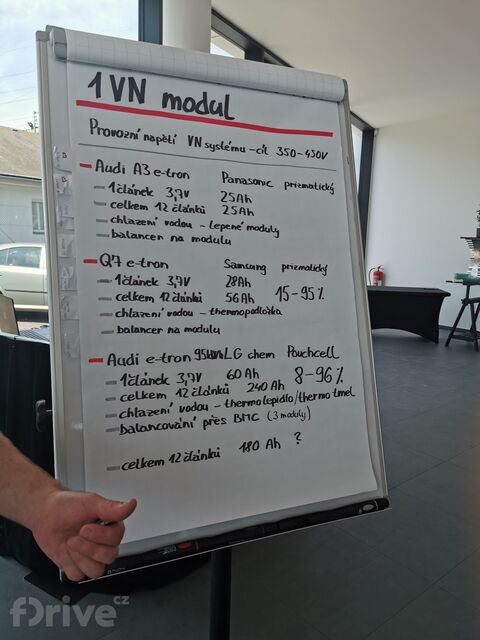 1 VN modul
Provozní napětí VN systému - cíl 350-450V
Audi A3 e-tron Panasonic prizmatický
1 článek 3,7V 25Ah
celkem 12 článků 25Ah
chlazení vodou - lepené moduly
balancer na modulu
Q7 e-tron Samsung prizmatický
1 článek 3,7V 28Ah
celkem 12 článků 56Ah 15-95%
chlazení vodou - thermopodložka
balancer na modulu
Audi e-tron 95kWh LG chem Pouchcell
1 článek 3,7V 60Ah 8-96%
celkem 12 článků 240Ah
chlazení vodou - thermolepidlo/thermo tmel
balancování přes BMC (3 moduly)
celkem 12 článků 180 Ah ?
fDrive.cz